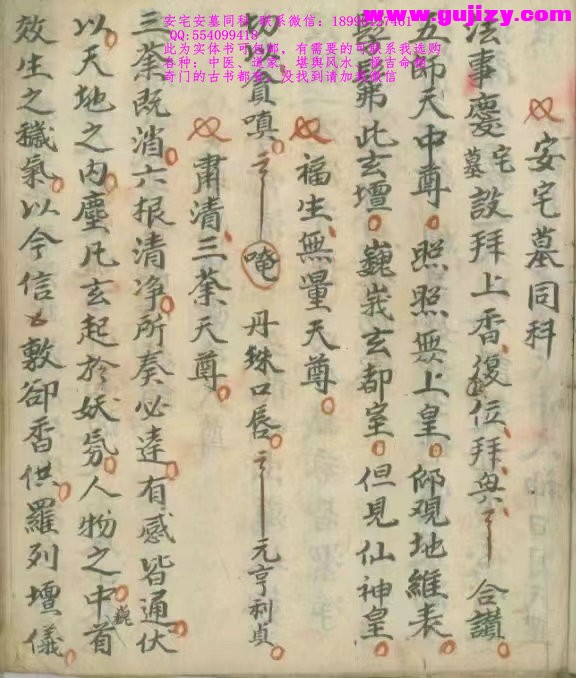 www.gujizy.com
安宅安墓同科 联系微信：18996
QQ:554099418
此为实体书可包邮，有需要的可联系我选购
各种：中医、道家、堪舆风水、择吉命理
奇门的古书都有，没找到请加我微信
安宅墓同科
法事慶宅墓設拜上香復位拜興 合讃
五師天中尊照照無上皇俯覌地維表
髣髴此玄壇巍峩玄都室但見仙神皇
福生無量天尊
切以貪嗔 唵 丹珠口唇 元亨利貞
肅清三業天尊
三業既消六根清净所奏必達有感皆通伏
以天地之内塵凡玄起於妖氛人物之中首
效生之穢氣以今信 敷卻香供羅列壇儀